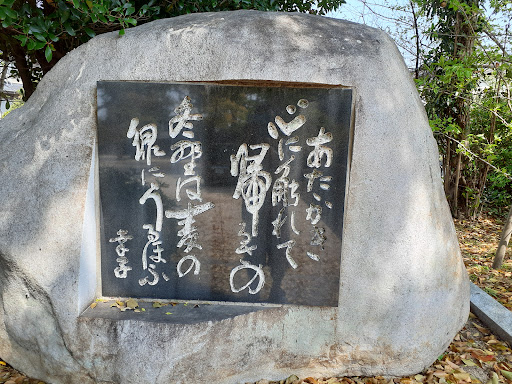 あたゝかき
心に触れて
帰るさの
冬野は麦の
緑にうるほふ
幸子